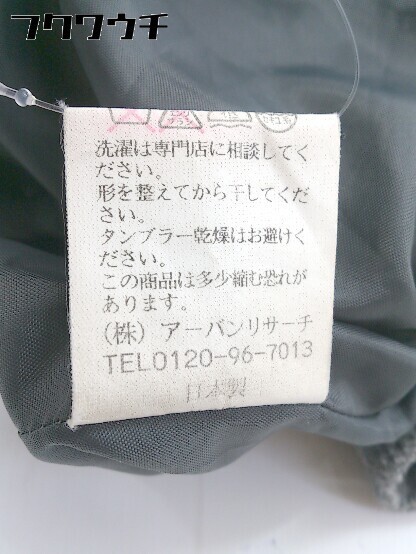 フクワウチ
洗濯は専門店に相談してく
ださい。
形を整えてから干してくだ
さい。
タンブラー乾燥はお避けく
ださい。
この商品は多少縮む恐れが
あります。
(株) アーバンリサーチ
TEL0120-96-7013
日本製